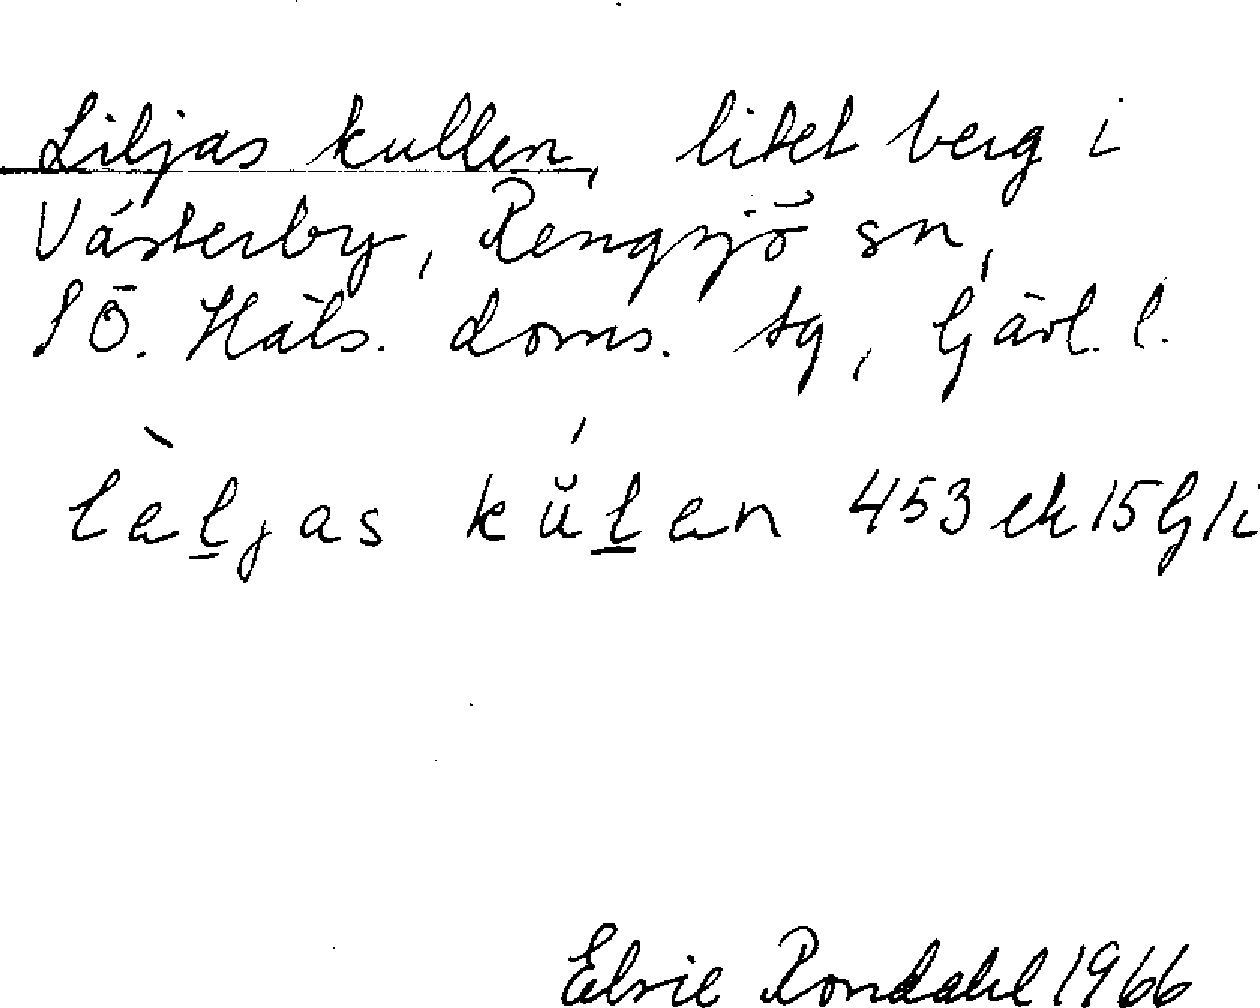 Liljas kullen, litet berg i
Västerby, Rengsjö sn,
SÖ. Häls. doms. tg, Gävl. l.
lèljas kúlen 453 ek 15 G 1 i
Elsie Rondahl 1966